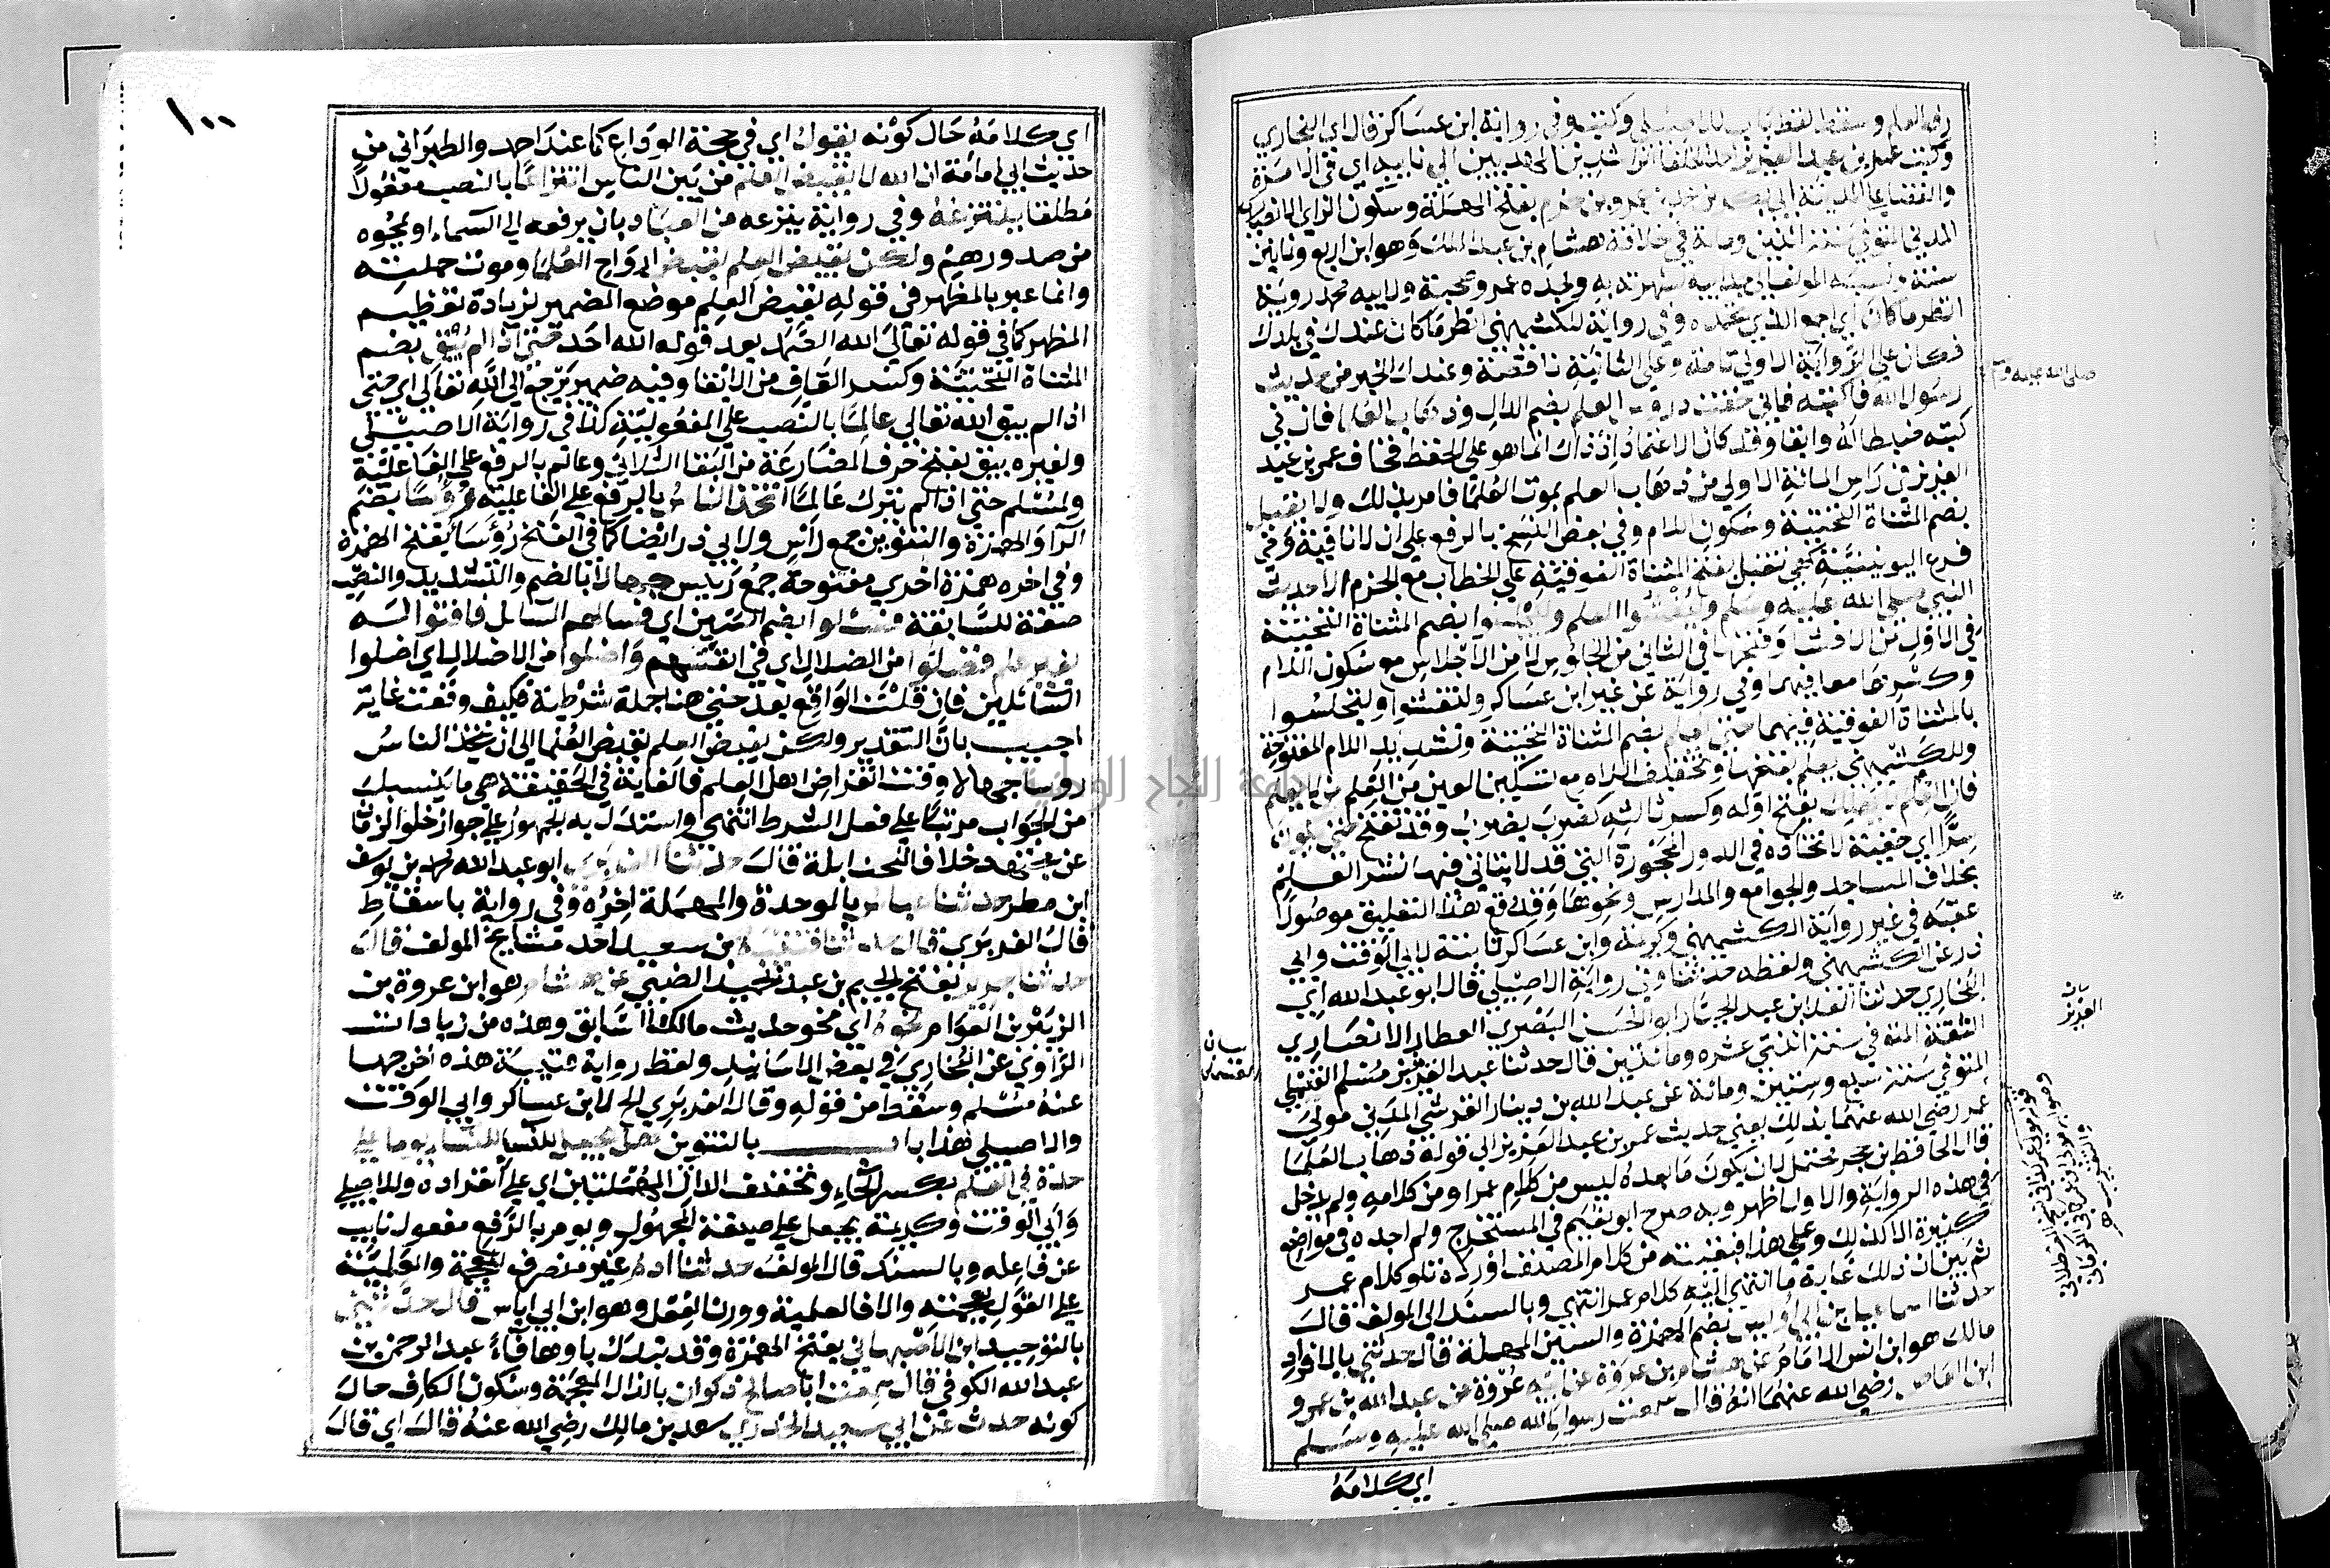 رفع العلم وسقط لفظ باب للاصيلي وكتب وفي رواية ابن عساكر قال اي البخاري
وكتب عمر بن عبد العزيز احد الخلفا الراشدين المهديين الي نايبه اي في الامرة
والقضا علي المدينة ابي بكر بن محمد بن عمرو بن حزم بفتح المهملة وسكون الزاي الانصاري
المدني المتوفي سنة اثنين ومائة في خلافة هشام بن عبد الملك وهو ابن اربع وثمانين
سنة ونسبه المولف الي جد ابيه لشهرته به ولجده عمرو صحبة ولابيه محمد روية
انظر ما كان اي اجمع الذي تجده وفي رواية للكشميهني انظر ما كان عندك في بلدك
فكان علي الرواية الاولي تامة وعلي الثانية ناقصة وعندك الخبر من حديث
رسول الله فاكتبه فاني خفت دروس العلم بضم الدال وذهاب العلما فان في
كتبه ضبطا له وابقا وقد كان الاعتماد اذ ذاك انما هو علي الحفظ فخاف عمر بن عبد
العزيز في راس المائة الاولي من ذهاب العلم بموت العلما فامر بذلك ولا تقبل
بضم المثناة التحتية وسكون اللام وفي بعض النسخ بالرفع علي ان لا نافية وفي
فرع اليونينية كهي تقبل بفتح المثناة الفوقية علي الخطاب مع الجزم الا حديث
النبي صلي الله عليه وسلم وليفشوا العلم وليجلسوا بضم المثناة التحتية
في الاول من الافشا وفتحها في الثاني من الجلوس لا من الاجلاس مع سكون اللام
وكسرها معا فيهما وفي رواية عن غير ابن عساكر ولتفشوا ولتجلسوا
بالمثناة الفوقية فيهما حتي يعلم بضم المثناة التحتية وتشديد اللام المفتوحة
وللكشميهني يعلم بفتحها وتخفيف اللام مع تسكين العين من العلم من لا يعلم
فان العلم لا يهلك بفتح اوله وكسر ثالثه كضرب يضرب وقد تفتح حتي يكون
سرا اي خفية كاتخاذه في الدور المحجورة التي قد لا يتاتي فيها نشر العلم
بخلاف المساجد والجوامع والمدارس ونحوها وقد وقع هذا التعليق موصولا
عقبه في غير رواية الكشميهني وكريمة وابن عساكر ثابتة لابي الوقت وابي
ذر عن الكشميهني ولفظه حدثنا وفي رواية الاصيلي قال ابو عبد الله اي
البخاري حدثنا العلا بن عبد الجبار ابو الحسن البصري العطار الانصاري
الثقة المتوفي سنة اثنتي عشرة ومائتين قال حدثنا عبد العزيز بن مسلم القسملي
المتوفي سنة سبع وستين ومائة عن عبد الله بن دينار القرشي المدني مولي
عمر رضي الله عنهما بذلك يعني حديث عمر بن عبد العزيز الي قوله ذهاب العلما
قال الحافظ بن حجر محتمل لان يكون ما بعده ليس من كلام عمر او من كلامه ولم يدخل
في هذه الرواية والاول اظهر وبه صرح ابو نعيم في المستخرج ولم اجده في مواضع
كثيرة الا كذلك وعلي هذا فبقيته من كلام المصنف اورده تلو كلام عمر
ثم بين ان ذلك غاية ما انتهي اليه كلام عمر انتهي وبالسند الي المولف قال
حدثنا اسماعيل بن ابي اويس بضم الهمزة والسين المهملة قال حدثني بالافراد
مالك هو ابن انس الامام عن هشام بن عروة عن ابيه عروة عن عبد الله بن عمرو
ابن العاص رضي الله عنهما انه قال سمعت رسول الله صلي الله عليه وسلم
اي كلامه
صلي الله عليه وسلم
باب
العزيز
بيان
١٠٠
اي كلامه حال كونه يقول اي في حجة الوداع كما عند احمد والطبراني من
حديث ابي امامة ان الله لا يقبض العلم من بين الناس انتزاعا بالنصب مفعولا
مطلقا ينتزعه وفي رواية ينزعه من العباد بان يرفعه الي السماء او يمحوه
من صدورهم ولكن يقبض العلم بقبض ارواح العلما وموت حملته
وانما عبر بالمظهر في قوله يقبض العلم موضع المضمر لزيادة تعظيم
المظهر كما في قوله تعالي الله الصمد بعد قوله الله احد حتي اذا لم يبق بضم
المثناة التحتية وكسر القاف من الابقا وفيه ضمير يرجع الي الله تعالي اي حتي
اذا لم يبق الله تعالي عالما بالنصب علي المفعولية كذا في رواية الاصيلي
ولغيره يبق بفتح حرف المضارعة من البقا الثلاثي وعالم بالرفع علي الفاعلية
ولمسلم حتي اذا لم يترك عالما اتخذ الناس بالرفع علي الفاعلية رؤسا بضم
الرا والهمزة والتنوين جمع راس ولابي ذر ايضا كما في الفتح رؤسا بفتح الهمزة
وفي اخره همزة اخري مفتوحة جمع رييس جهالا بالضم والتشديد والنصب
صفة للسابقة فسئلوا بضم السين اي فسالهم السائل فافتوا له
بغير علم فضلوا من الضلال اي في انفسهم واضلوا من الاضلال اي اضلوا
السائلين فان قلت الواقع بعد حتي هنا جملة شرطية فكيف وقعت غاية
اجيب بان التقدير ولكن يقبض العلم بقبض العلما الي ان يتخذ الناس
روسا جهالا وقت انقراض اهل العلم فالغاية في الحقيقة هي ما ينسبك
من الجواب مرتبا علي فعل الشرط انتهي واستدل به الجمهور علي جواز خلو الزمان
عن مجتهد خلافا للحنابلة قال حدثنا الفربري ابو عبد الله محمد بن يوسف
ابن مطر حدثنا عباس بالموحدة والمهملة اخره وفي رواية باسقاط
قال الفربري قال حدثنا قتيبة بن سعيد احد مشايخ المولف قال
حدثنا جرير بفتح الجيم بن عبد الحميد الضبي عن هشام هو ابن عروة بن
الزبير بن العوام نحوه اي نحو حديث مالك السابق وهذه من زيادات
الراوي عن البخاري في بعض الاسانيد ولفظ رواية قتيبة هذه اخرجها
عنه مسلم وسقط من قوله وقال الفربري الخ لابن عساكر وابي الوقت
والاصيلي هذا باب بالتنوين هل يجعل للنسا للنسا يوما علي
حدة في العلم بكسر الحاء وتخفيف الدال المهملتين اي علي انفراده وللاصيلي
وابي الوقت وكريمة يجعل علي صيغة المجهول ويوم بالرفع مفعول نايب
عن فاعله وبالسند قال المولف حدثنا ادم غير منصرف للعجمة والعلمية
علي القول بعجمته والا فالعلمية ووزن الفعل وهو ابن ابي اياس قال حدثني
بالتوحيد ابن الاصبهاني بفتح الهمزة وقد تبدل باوها فاء عبد الرحمن بن
عبد الله الكوفي قال سمعت ابا صالح ذكوان بالذال المعجمة وسكون الكاف حال
كونه حدث عن ابي سعيد الخدري سعد بن مالك رضي الله عنه قال اي قال